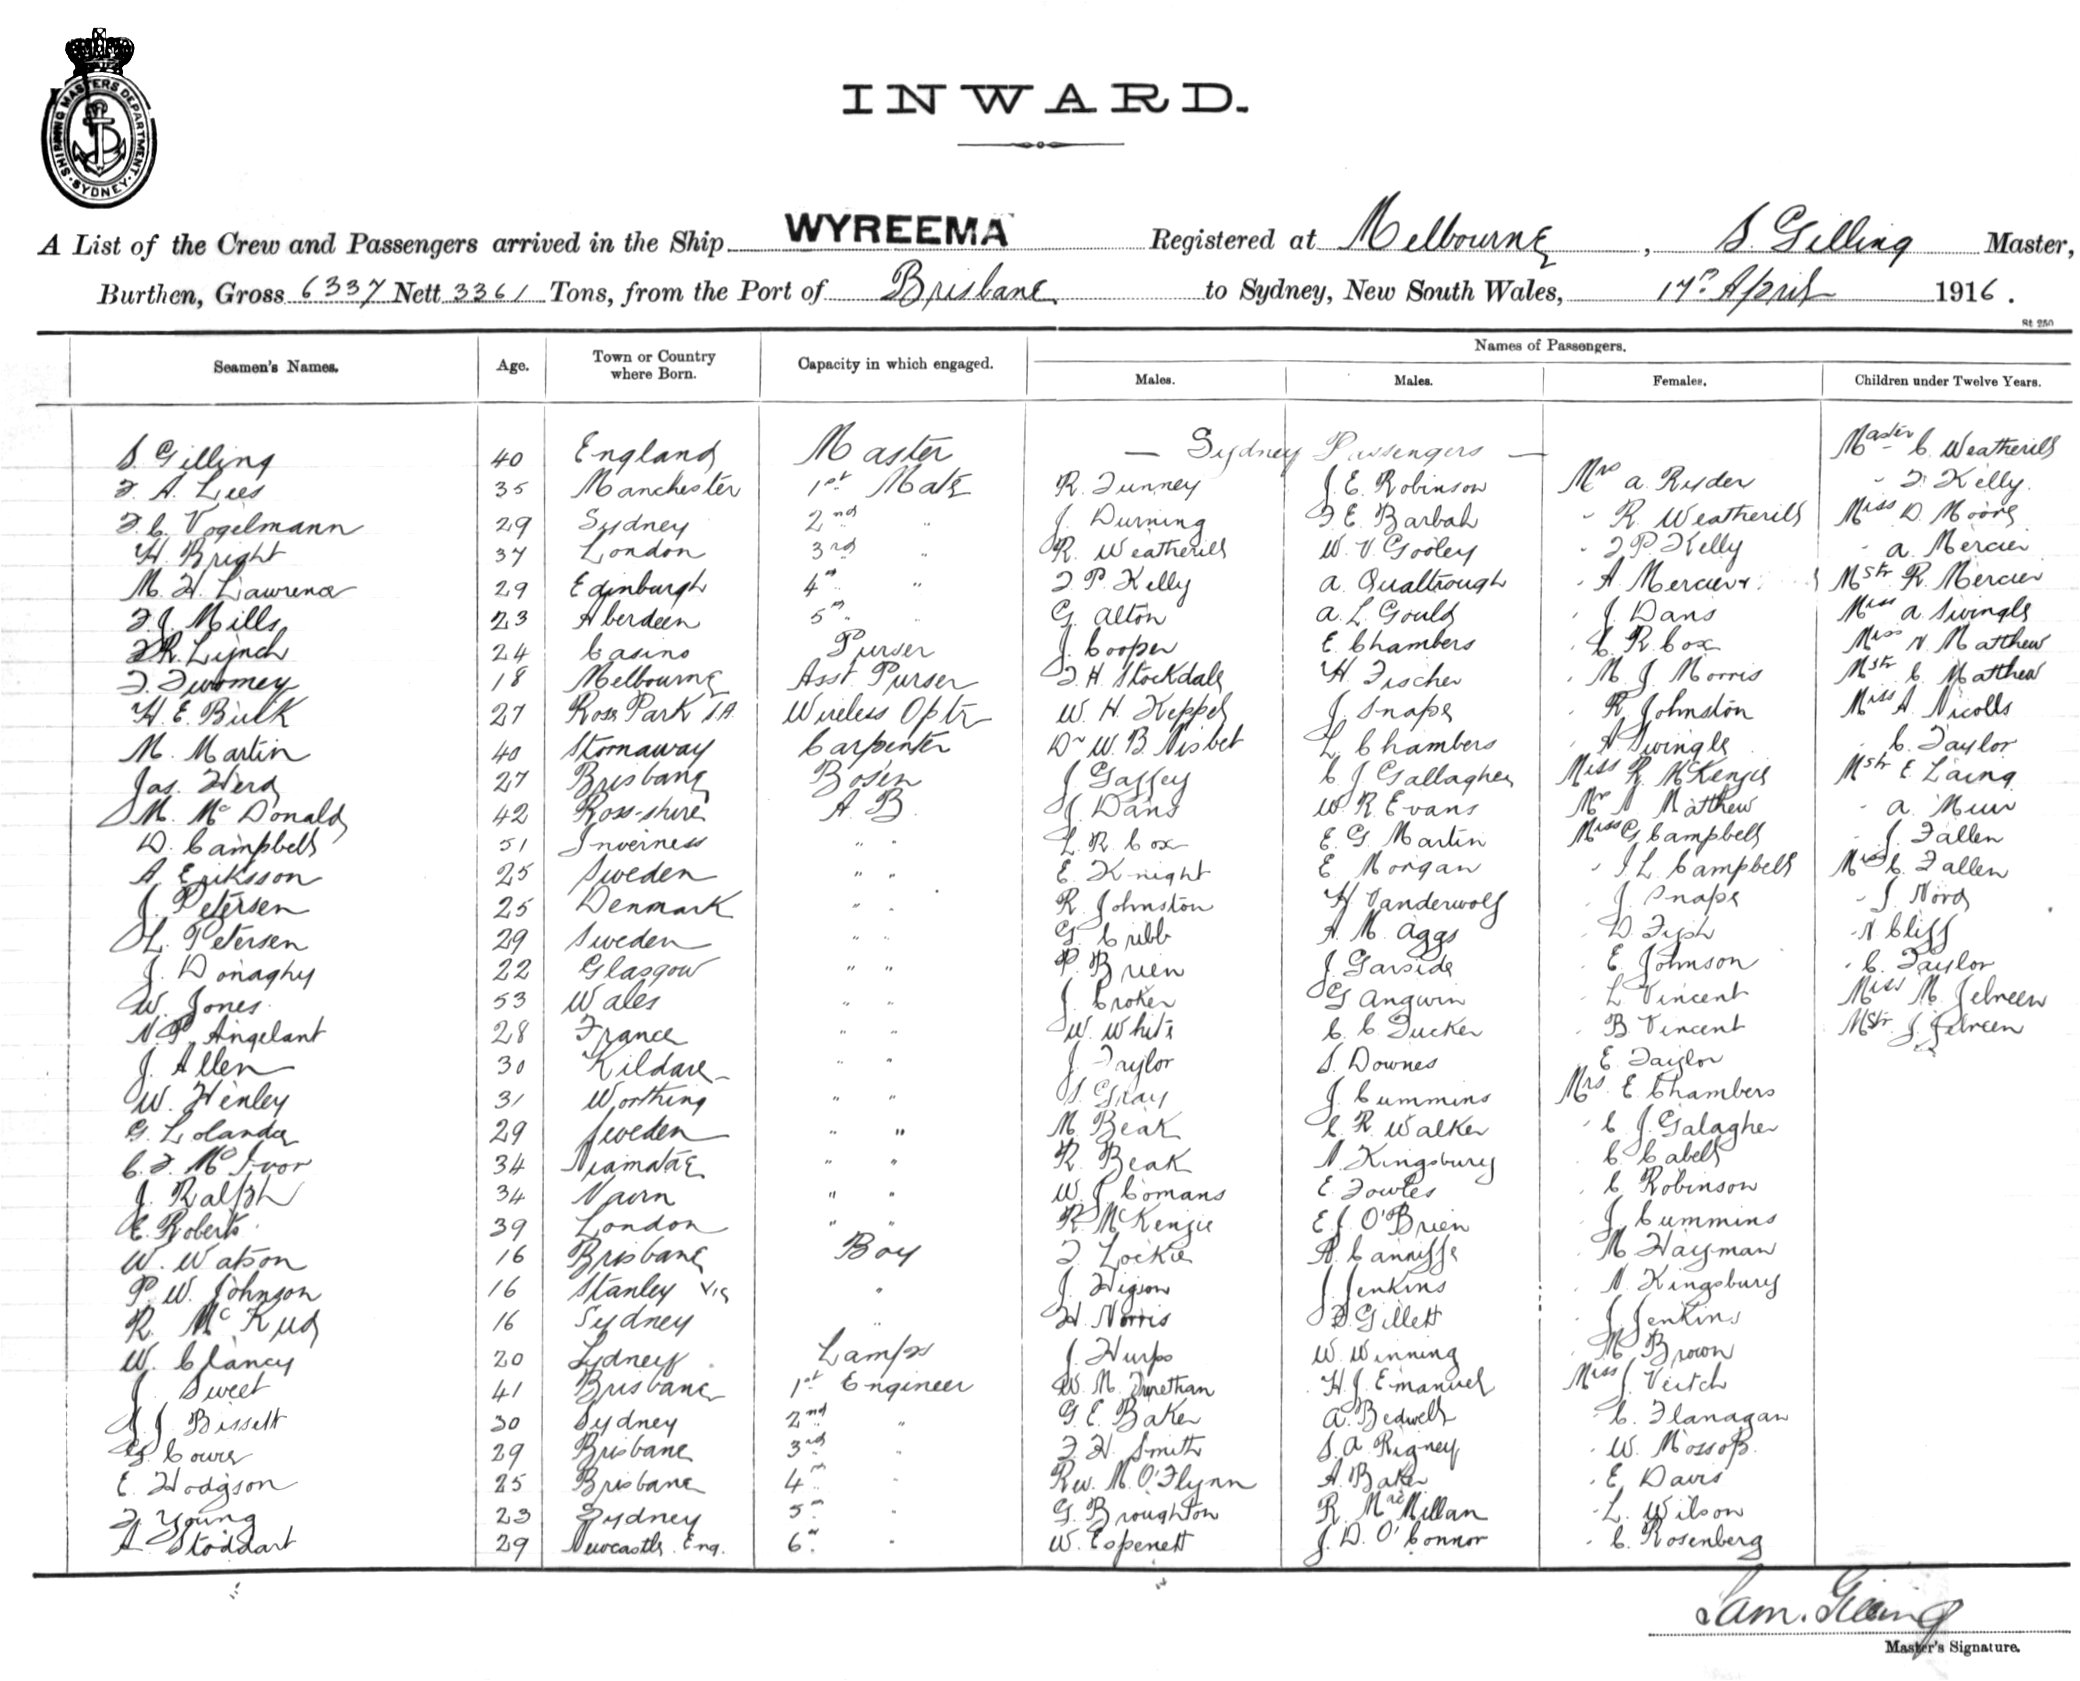 SHIPPING MASTERS DEPARTMENT · SYDNEY ·
INWARD.
A List of the Crew and Passengers arrived in the Ship WYREEMA Registered at Melbourne, S. Gilling Master,
Burthen, Gross 6337 Nett 3361 Tons, from the Port of Brisbane to Sydney, New South Wales, 17th April 1916.
St 250
Seamen's Names. Age. Town or Country where Born. Capacity in which engaged. Names of Passengers.
Males. Males. Females. Children under Twelve Years.
S. Gilling 40 England Master — Sydney Passengers — Master C. Weatherill
F. A. Lees 35 Manchester 1st Mate R. Tunney J. E. Robinson Mrs A. Ryder " F. Kelly
F. C. Vogelmann 29 Sydney 2nd " J. Durning F. E. Barbah " R. Weatherill Miss D. Moore
H. Bright 37 London 3rd " R. Weatherill W. V. Gooley " F. P. Kelly " A. Mercier
M. H. Lawrence 29 Edinburgh 4th " F. P. Kelly A. Qualtrough " A Mercier Mstr R. Mercier
F. J. Mills 23 Aberdeen 5th " G. Alton A. L. Gould " J. Dans Miss A. Swingle
F. R. Lynch 24 Casino Purser J. Cooper E. Chambers " C. R. Cox Miss N Matthew
F. Twomey 18 Melbourne Asst Purser F. H. Stockdale H. Fischer " M. J. Morris Mstr C. Matthew
H. E. Buik 27 Rose Park S.A. Wireless Optr W. H. Keppel J. Snape " R Johnston Miss A. Nicolls
M. Martin 40 Stornaway Carpenter Dr W. B. Nisbet L. Chambers " A Swingle " C. Taylor
Jas. Herd 27 Brisbane Bosen J Gaffey C. J. Gallagher Miss R. McKenzie Mstr E. Laing
M. McDonald 42 Ross-shire A B. J. Dans W. R. Evans Mrs N Matthew " A. Muir
D. Campbell 51 Inverness " " L. R. Cox E. G. Martin Miss G Campbell " J. Fallen
A. Eriksson 25 Sweden " " E. Knight E Morgan " J. L. Campbell Miss C. Fallen
J. Petersen 25 Denmark " " R. Johnston H Vanderwolf " J. Snape " J. Nord
L. Petersen 29 Sweden " " G. Cribb A. M. Aggs " D Fish " N Cliff
J. Donaghy 22 Glasgow " " P. Brien J. Garside " E. Johnson " C. Taylor
W. Jones 53 Wales " " J. Croker G Angwin " L. Vincent Miss M.
N. P. Angelant 28 France " " W. White C. C. Tucker " B Vincent Mstr J.
J. Allen 30 Kildare " " J. Taylor S. Downes " E. Taylor
W. Henley 31 Worthing " " S. Gray J. Cummins Mrs E Chambers
G. Lolanda 29 Sweden " " M. Beak C. R. Walker " C J. Galagher
C. F. McIvor 34 " " R. Beak N. Kingsbury " C. Cabell
J. Ralph 34 Nairn " " W. J. Comans E. Fowles " C Robinson
E. Roberts 39 London " " R. McKenzie E. J. O'Brien " J. Cummins
W. Watson 16 Brisbane Boy F. Lockie A. Canniffe " M Hayman
P. W. Johnson 16 Stanley Vic " J. J. Jenkins " N. Kingsbury
R. McKud 16 Sydney " H. Norris F. Gillett " J. Jenkins
W. Clancy 20 Sydney Lamps J. W. Winning " M Brown
J. Sweet 41 Brisbane 1st Engineer W. M. H. J. Emanuel Miss J. Veitch
A. J. Bissett 30 Sydney 2nd " G. E. Baker A. Bedwell " C. Flanagan
G. Cowie 29 Brisbane 3rd " F. H. Smith S. A. Rigney " W. Mossop
E. Hodgson 25 Brisbane 4th " Rev. M. O'Flynn A. Baker " E. Davis
F Young 23 Sydney 5th " G. Broughton R. MacMillan " L. Wilson
A. Stoddart 29 Newcastle Eng. 6th " W. Espenett J. D. O'Connor " C. Rosenberg
Sam. Gilling
Master's Signature.